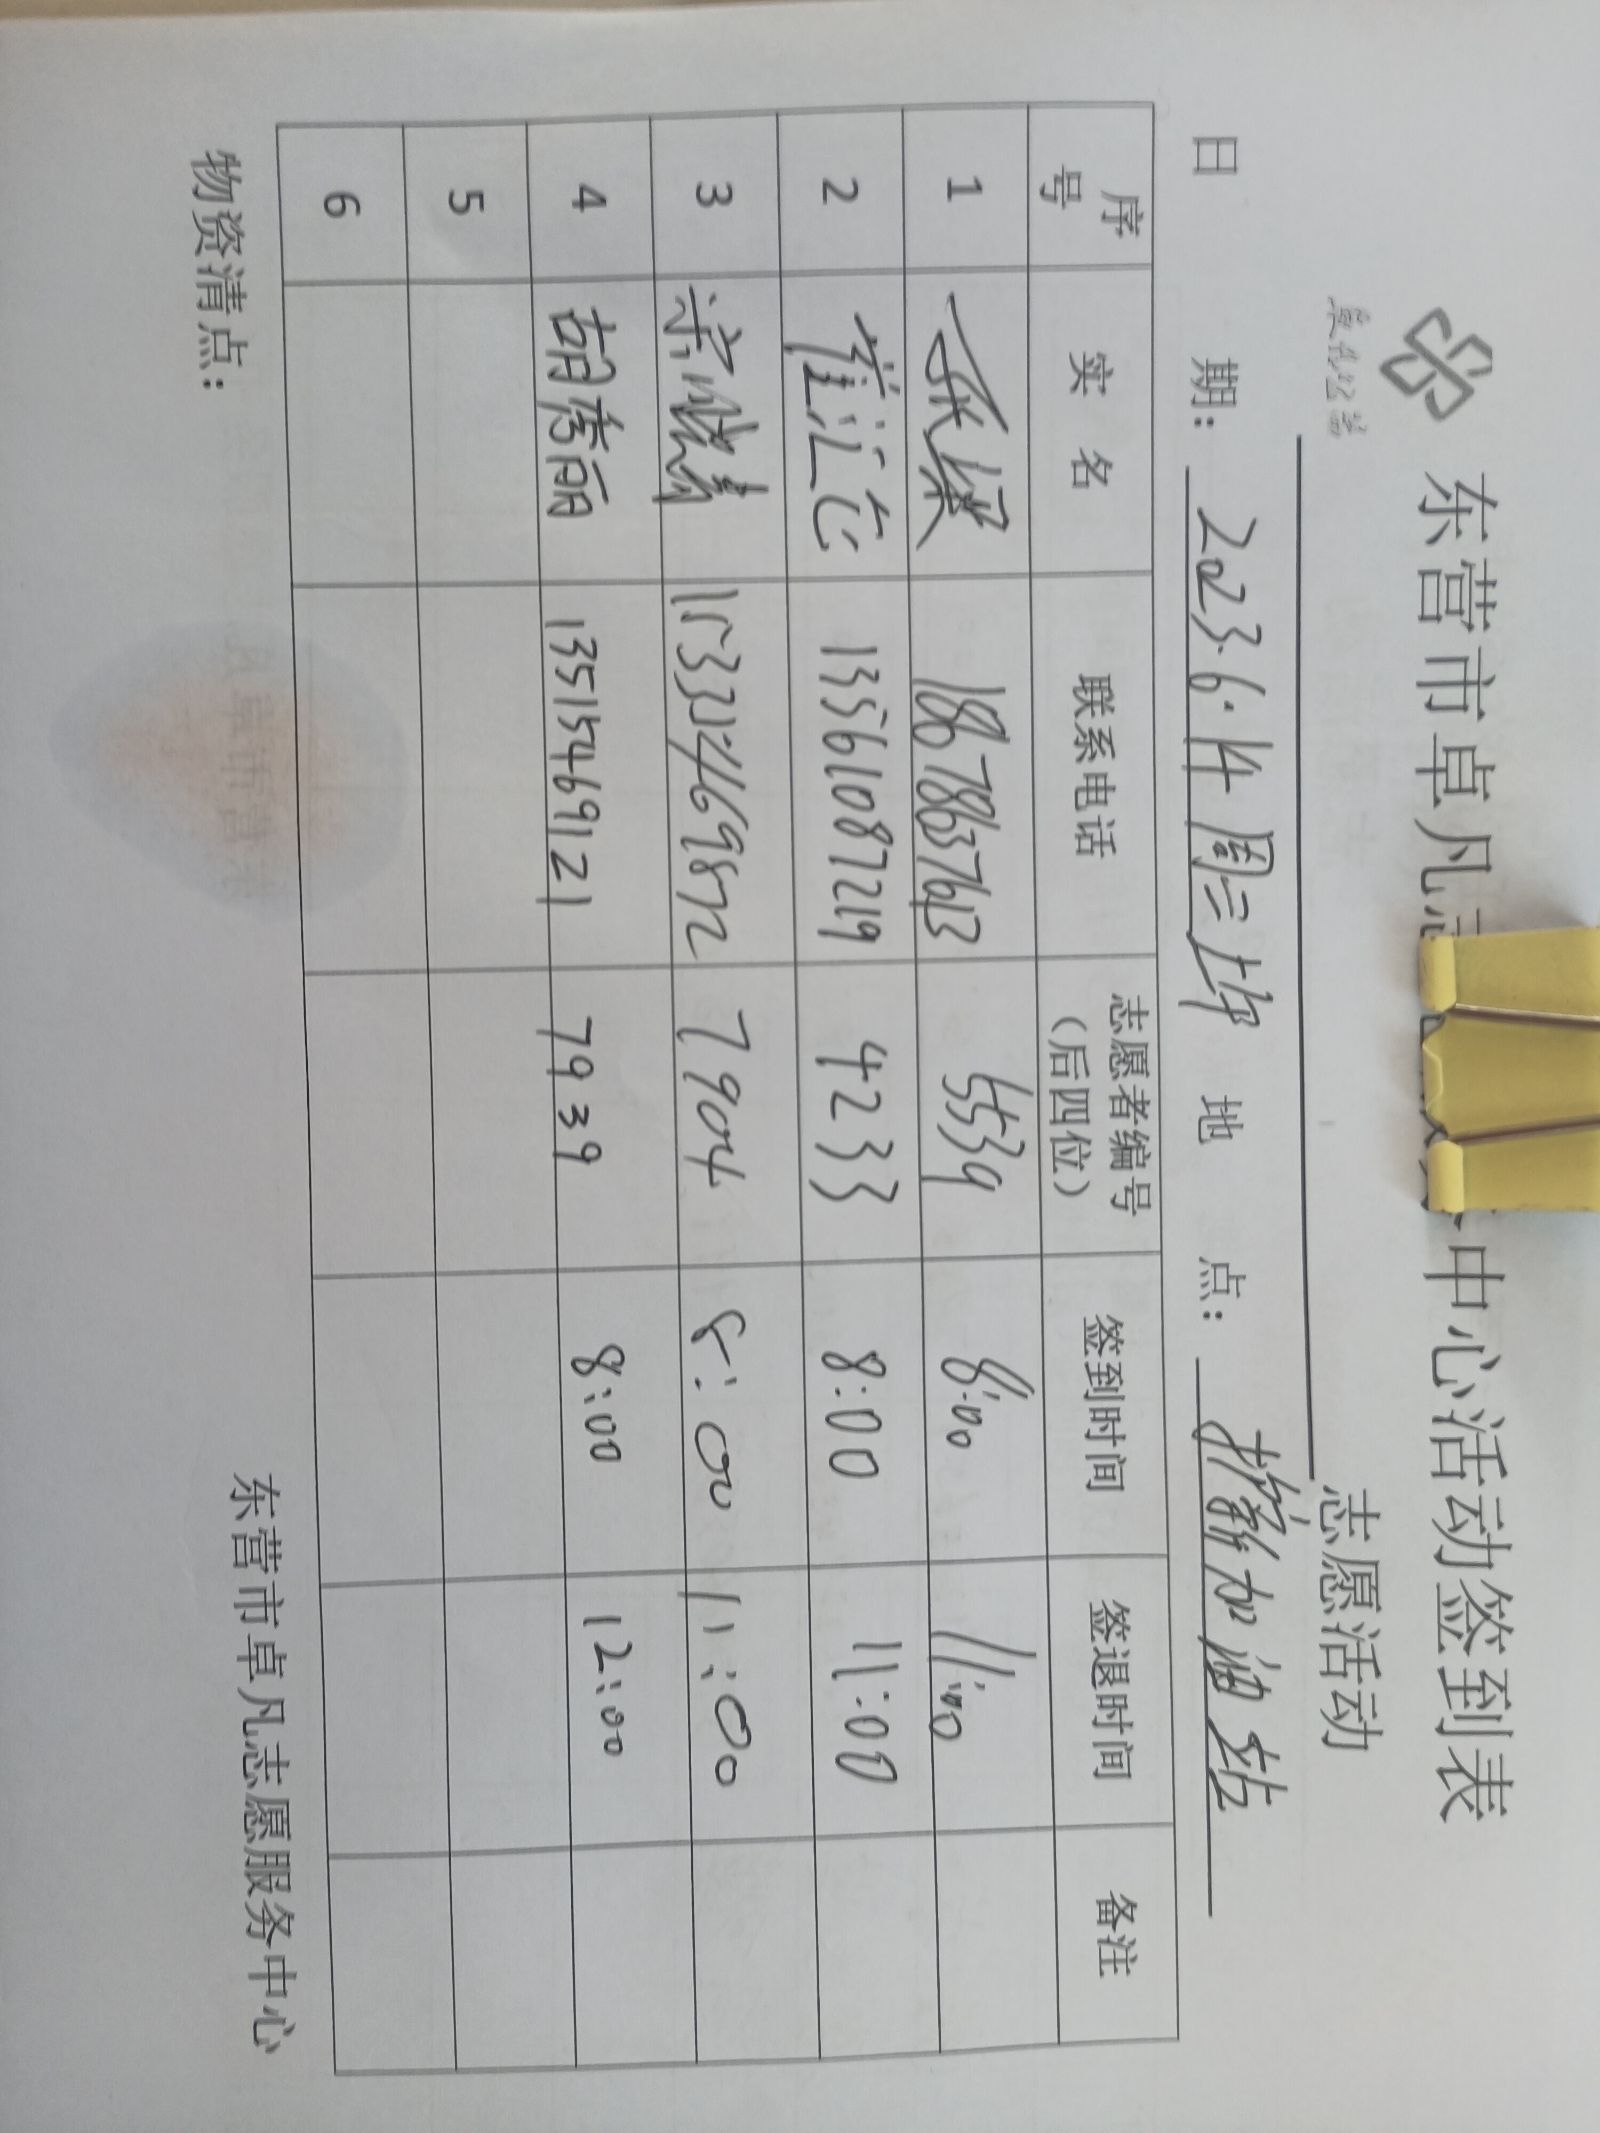 东营市卓凡志 中心活动签到表
志愿活动
日 期: 2023.6.14 周三上午 地 点: 加油站
序号 实 名 联系电话 志愿者编号(后四位) 签到时间 签退时间 备注
1 18678637613 5539 8:00 11:00
2 崔汇 13561087219 4233 8:00 11:00
3 15332469872 7904 8:00 11:00
4 胡秀丽 13515469121 7939 8:00 12:00
5
6
物资清点:
东营市卓凡志愿服务中心